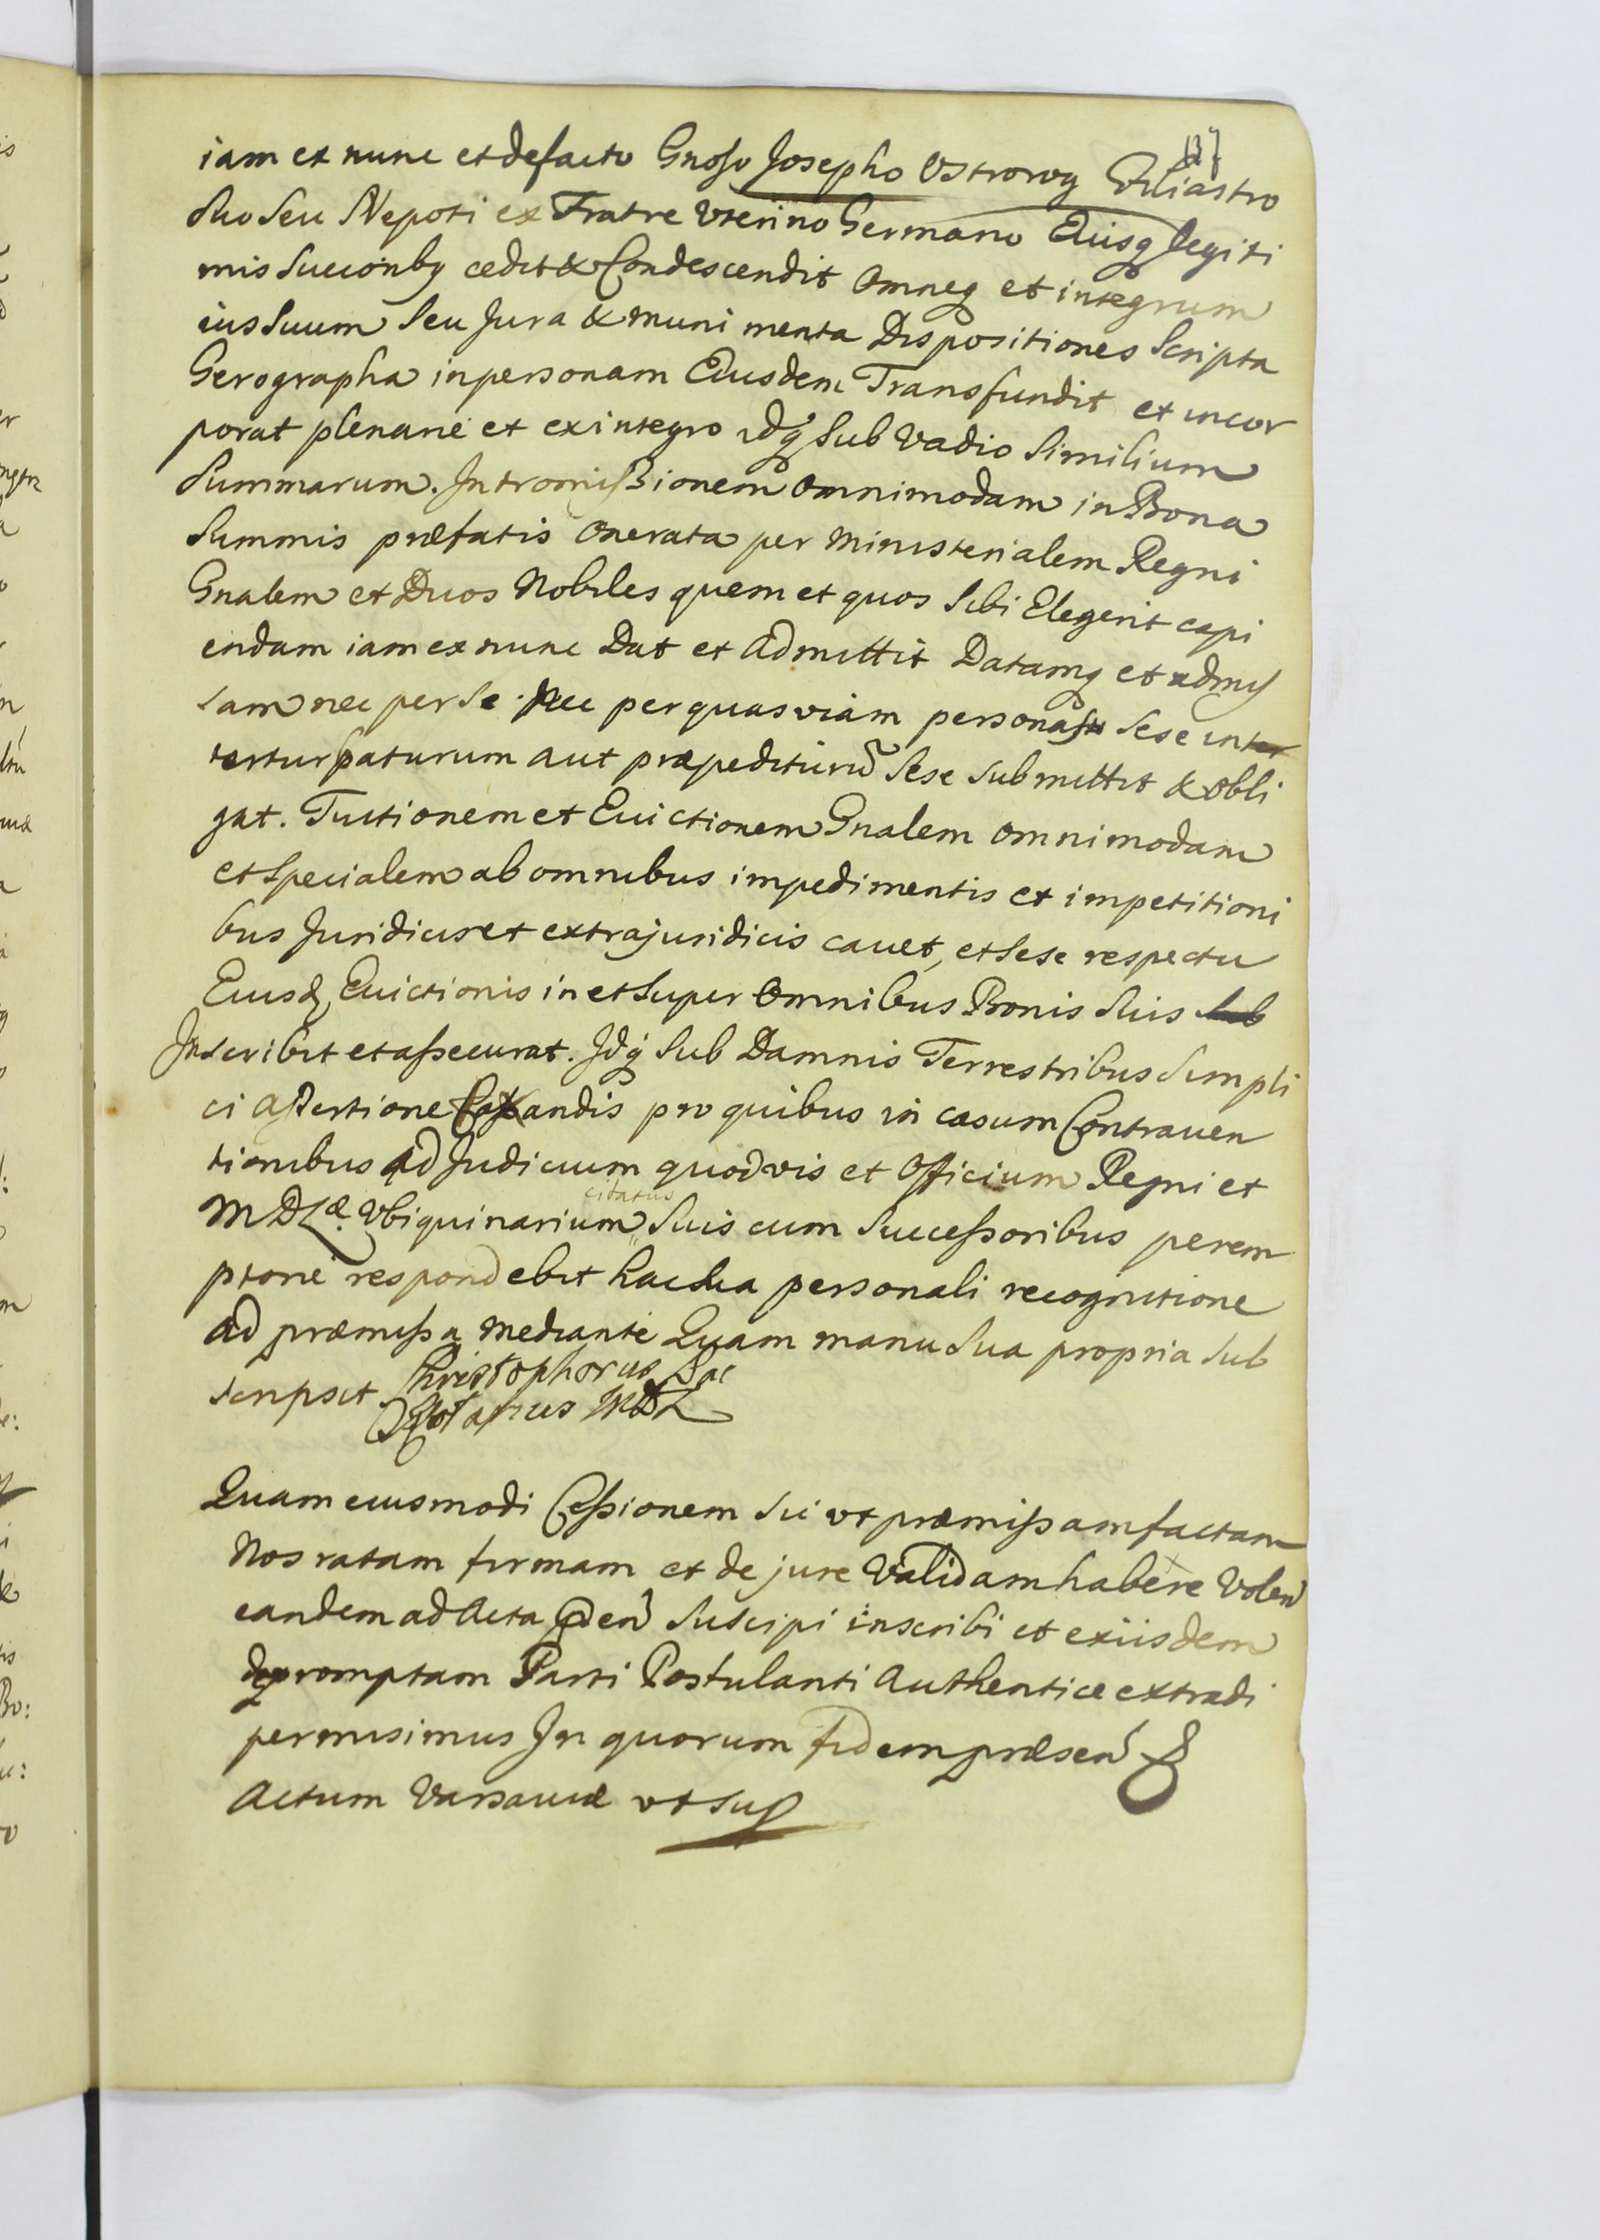 137
iam ex nunc et defacto Gnoso Josepho Ostrowy Filiastro
Suo Seu Nepoti ex Fratre Vterino Germano Eiusq legiti
mis Succonby cedit & Condescendit Omneq et integrum
ius Suum Seu Jura & muni menta Dispositiones Scripta
Gerographa in personam Eiusdem Transfundit et incor
porat plenarie et ex integro idq Sub Vadio Similium
Summarum. Intromissionem Omnimodam in Bona
Summis præfatis Onerata per Ministerialem Regni
Gnalem et Duos Nobiles quem et quos Sibi Elegerit capi
endam iam ex nunc Dat et Admittit Datamq et admis
sam nec per Se Nec per quasviam personas Sese inter
terturpaturum aut præpediturũ Sese Submittit & Obli
gat. Tuitionem et Euictionem Gnalem Omnimodam
et Specialem ab omnibus impedimentis et impetitioni
bus Juridicis et extrajuridicis cauet, et Sese respectu
Eiusd Euictionis in et Super Omnibus Bonis Suis Sub
Inscribit et assecurat. Idq Sub Damnis Terrestribus Simpli
ci assertione Taxandis pro quibus in casum Contrauen
tionibus ad Judicium quodvis et Officium Regni et
MDLæ. Vbiquinarium citatus Suis cum Successoribus perem
ptorie respondebit hac sua personali recognitione
ad præmissa mediante Quam manu Sua propria Sub
scripsit Christophorus Pac
Notarius MDL
Quam eiusmodi Cessionem Sic vt præmissam factam
Nos ratam firmam et de jure Validam habere Volen
eandem ad Acta pñden Suscipi inscribi et exiisdem
depromptam Parti Postulanti Authentice extradi
permisimus In quorum fidem præsen
Actum Varsauiæ vt sup